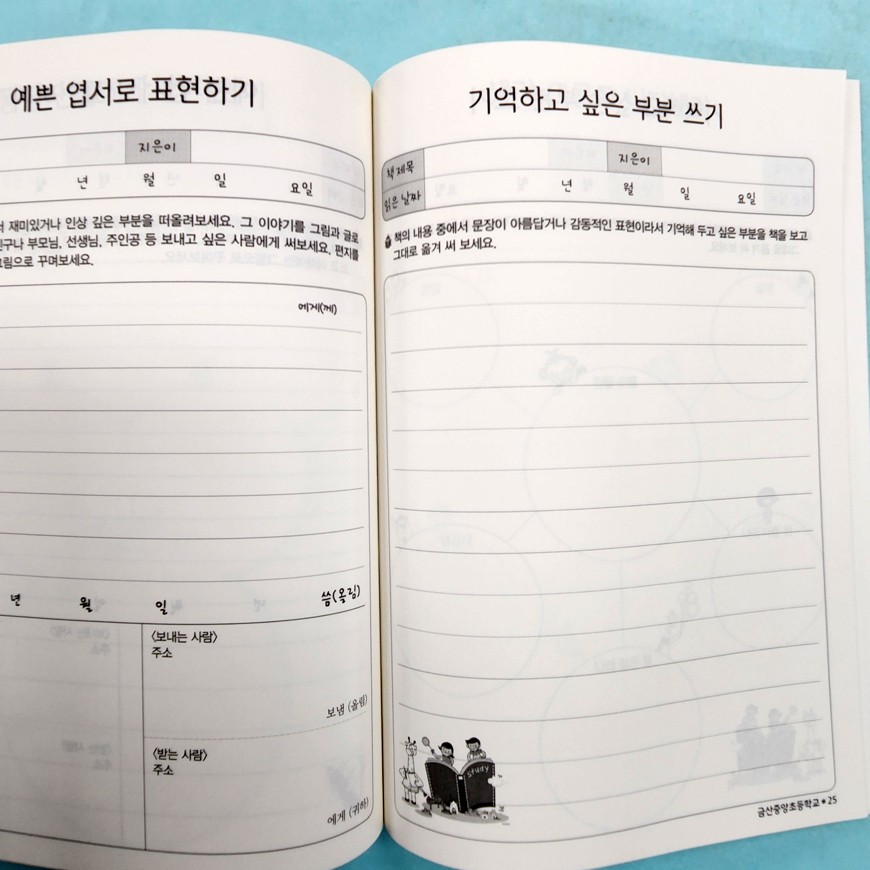 예쁜 엽서로 표현하기
지은이
년 월 일 요일
재미있거나 인상 깊은 부분을 떠올려보세요. 그 이야기를 그림과 글로
부모님, 선생님, 주인공 등 보내고 싶은 사람에게 써보세요. 편지를
꾸며보세요.
에게(께)
년 월 일 씀(올림)
<보내는 사람>
주소
보냄 (올림)
<받는 사람>
주소
에게 (귀하)
기억하고 싶은 부분 쓰기
책 제목 지은이
읽은 날짜 년 월 일 요일
책의 내용 중에서 문장이 아름답거나 감동적인 표현이라서 기억해 두고 싶은 부분을 책을 보고
그대로 옮겨 써 보세요.
Study
금산중앙초등학교 * 25